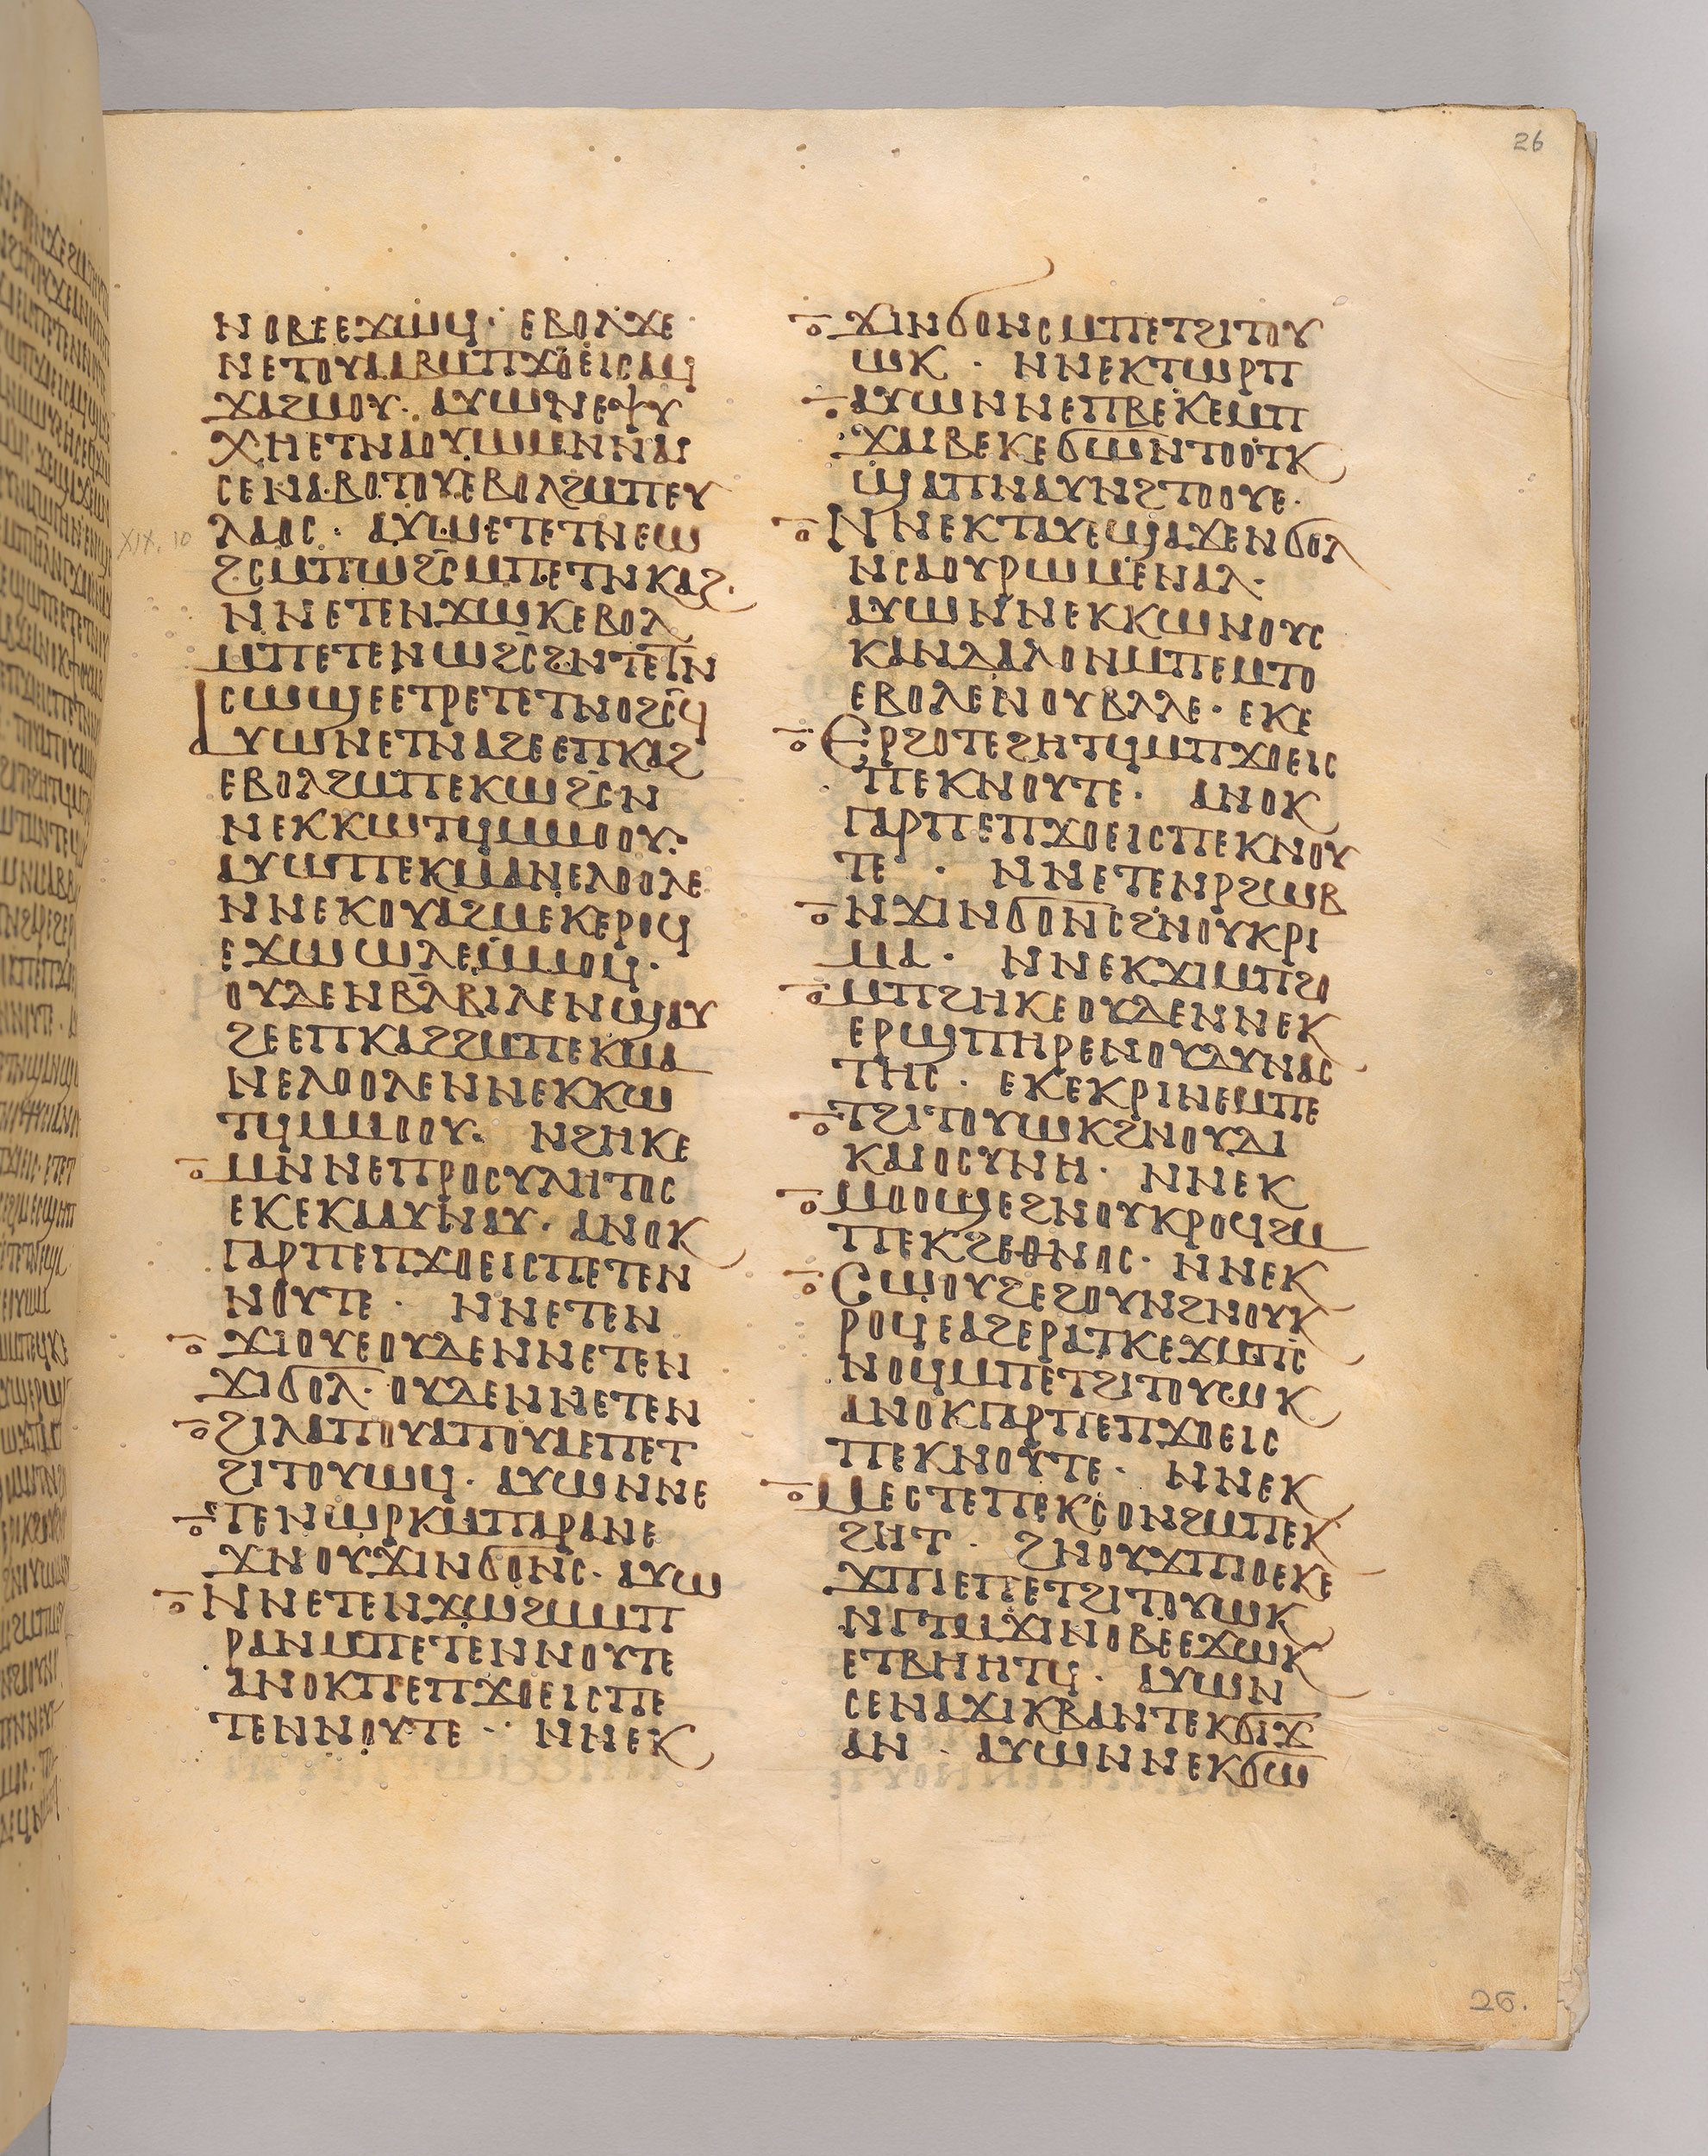 26
ⲛⲟⲃⲉⲉϫⲱϥ· ⲉⲃⲟⲗϫⲉ
ⲛⲉⲧⲟⲩⲁⲁⲃⲙⲡϫⲟⲉⲓⲥⲁϥ
ϫⲁϩⲙⲟⲩ· ⲁⲩⲱⲛⲉⲯⲩ
ⲭⲏⲉⲧⲛⲁⲟⲩⲱⲙⲉⲛⲛⲁⲓ
ⲥⲉⲛⲁⲃⲟⲧⲟⲩⲉⲃⲟⲗϩⲙⲡⲉⲩ
XIX, 10
ⲗⲁⲟⲥ· ⲁⲩⲱⲉⲧⲉⲧⲛⲉⲱ
ϩⲥⲙⲡⲱϩⲥⲙⲡⲉⲧⲛⲕⲁϩ·
ⲛⲛⲉⲧⲉⲛϫⲱⲕⲉⲃⲟⲗ
ⲙⲡⲉⲧⲉⲛⲱϩⲥϩⲛⲧⲉⲓⲛ
ⲥⲱϣⲉⲉⲧⲣⲉⲧⲉⲧⲛⲟϩⲥϥ
ⲁⲩⲱⲛⲉⲧⲛⲁϩⲉⲉⲡⲕⲁϩ
ⲉⲃⲟⲗϩⲙⲡⲉⲕⲱϩⲥⲛ
ⲛⲉⲕⲕⲱⲧϥⲙⲙⲟⲟⲩ·
ⲁⲩⲱⲡⲉⲕⲙⲁⲛⲉⲗⲟⲟⲗⲉ
ⲛⲛⲉⲕⲟⲩⲁϩⲙⲉⲕⲉⲣⲓϥ
ⲉϫⲱⲱⲗⲉⲙⲙⲟϥ·
ⲟⲩⲇⲉⲛⲃⲗⲃⲓⲗⲉⲛϣⲁⲩ
ϩⲉⲉⲡⲕⲁϩϩⲙⲡⲉⲕⲙⲁ
ⲛⲉⲗⲟⲟⲗⲉⲛⲛⲉⲕⲕⲱ
ⲧϥⲙⲙⲟⲟⲩ· ⲛϩⲏⲕⲉ
ⲙⲛⲛⲉⲡⲣⲟⲥⲩⲗⲏⲧⲟⲥ
ⲉⲕⲉⲕⲁⲁⲩⲛⲁⲩ· ⲁⲛⲟⲕ
ⲅⲁⲣⲡⲉⲡϫⲟⲉⲓⲥⲡⲉⲧⲉⲛ
ⲛⲟⲩⲧⲉ· ⲛⲛⲉⲧⲉⲛ
ϫⲓⲟⲩⲉⲟⲩⲇⲉⲛⲛⲉⲧⲉⲛ
ϫⲓϭⲟⲗ·ⲟⲩⲇⲉⲛⲛⲉⲧⲉⲛ
ϩⲓⲗⲁⲡⲟⲩⲁⲡⲟⲩⲁⲉⲡⲉⲧ
ϩⲓⲧⲟⲩⲱϥ· ⲁⲩⲱⲛⲛⲉ
ⲧⲉⲛⲱⲣⲕⲙⲡⲁⲣⲁⲛⲉ
ϫⲛⲟⲩϫⲓⲛϭⲟⲛⲥ· ⲁⲩⲱ
ⲛⲛⲉⲧⲉⲛϫⲱϩⲙⲙⲡ
ⲣⲁⲛⲙⲡⲉⲧⲉⲛⲛⲟⲩⲧⲉ
ⲁⲛⲟⲕⲡⲉⲡϫⲟⲉⲓⲥⲡⲉ
ⲧⲉⲛⲛⲟⲩⲧⲉ·· ⲛⲛⲉⲕ
ϫⲓⲛϭⲟⲛⲥⲙⲡⲉⲧϩⲓⲧⲟⲩ
ⲱⲕ· ⲛⲛⲉⲕⲧⲱⲣⲡ
ⲁⲩⲱⲛⲛⲉⲡⲃⲉⲕⲉⲙⲡ
ϫⲁⲓⲃⲉⲕⲉϭⲱⲛⲧⲟⲟⲧⲕ
ϣⲁⲡⲛⲁⲩⲛϩⲧⲟⲟⲩⲉ·
ⲛⲛⲉⲕⲧⲁⲩⲉϣⲁϫⲉⲛϭⲟⲗ
ⲛⲥⲁⲟⲩⲣⲱⲙⲉⲛⲁⲗ·
ⲁⲩⲱⲛⲛⲉⲕⲕⲱⲛⲟⲩⲥ
ⲕⲁⲛⲇⲁⲗⲟⲛⲙⲡⲉⲙⲧⲟ
ⲉⲃⲟⲗⲉⲛⲟⲩⲃⲗⲗⲉ· ⲉⲕⲉ
ⲉⲣϩⲟⲧⲉϩⲏⲧϥⲙⲡϫⲟⲉⲓⲥ
ⲡⲉⲕⲛⲟⲩⲧⲉ· ⲁⲛⲟⲕ
ⲅⲁⲣⲡⲉⲡϫⲟⲉⲓⲥⲡⲉⲕⲛⲟⲩ
ⲧⲉ· ⲛⲛⲉⲧⲉⲛⲣϩⲱⲃ
ⲛϫⲓⲛϭⲟⲛⲥϩⲛⲟⲩⲕⲣⲓ
ⲙⲁ· ⲛⲛⲉⲕϫⲓⲙⲡϩⲟ
ⲙⲡϩⲏⲕⲉⲟⲩⲇⲉⲛⲛⲉⲕ
ⲉⲣϣⲡⲏⲣⲉⲛⲟⲩⲇⲩⲛⲁⲥ
ⲧⲏⲥ· ⲉⲕⲉⲕⲣⲓⲛⲉⲙⲡⲉ
ⲧϩⲓⲧⲟⲩⲱⲕϩⲛⲟⲩⲇⲓ
ⲕⲁⲓⲟⲥⲩⲛⲏ· ⲛⲛⲉⲕ
ⲙⲟⲟϣⲉϩⲛⲟⲩⲕⲣⲟϥϩⲙ
ⲡⲉⲕϩⲉⲑⲛⲟⲥ· ⲛⲛⲉⲕ
ⲥⲱⲟⲩϩⲉϩⲟⲩⲛϩⲛⲟⲩⲕ
ⲣⲟϥⲉⲁϩⲉⲣⲁⲧⲕⲉϫⲙⲡⲥ
ⲛⲟϥⲙⲡⲉⲧϩⲓⲧⲟⲩⲱⲕ
ⲁⲛⲟⲕⲅⲁⲣⲡⲉⲡϫⲟⲉⲓⲥ
ⲡⲉⲕⲛⲟⲩⲧⲉ· ⲛⲛⲉⲕ
ⲙⲉⲥⲧⲉⲡⲉⲕⲥⲟⲛϩⲙⲡⲉⲕ
ϩⲏⲧ· ϩⲛⲟⲩϫⲡⲓⲟⲉⲕⲉ
ϫⲡⲓⲉⲡⲉⲧϩⲓⲧⲟⲩⲱⲕ
ⲛⲅⲧⲙϫⲓⲛⲟⲃⲉⲉϫⲱⲕ
ⲉⲧⲃⲏⲏⲧϥ· ⲁⲩⲱⲛ
ⲥⲉⲛⲁϫⲓⲕⲃⲁⲛⲧⲉⲕϭⲓϫ
ⲁⲛ· ⲁⲩⲱⲛⲛⲉⲕϭⲱ
26.